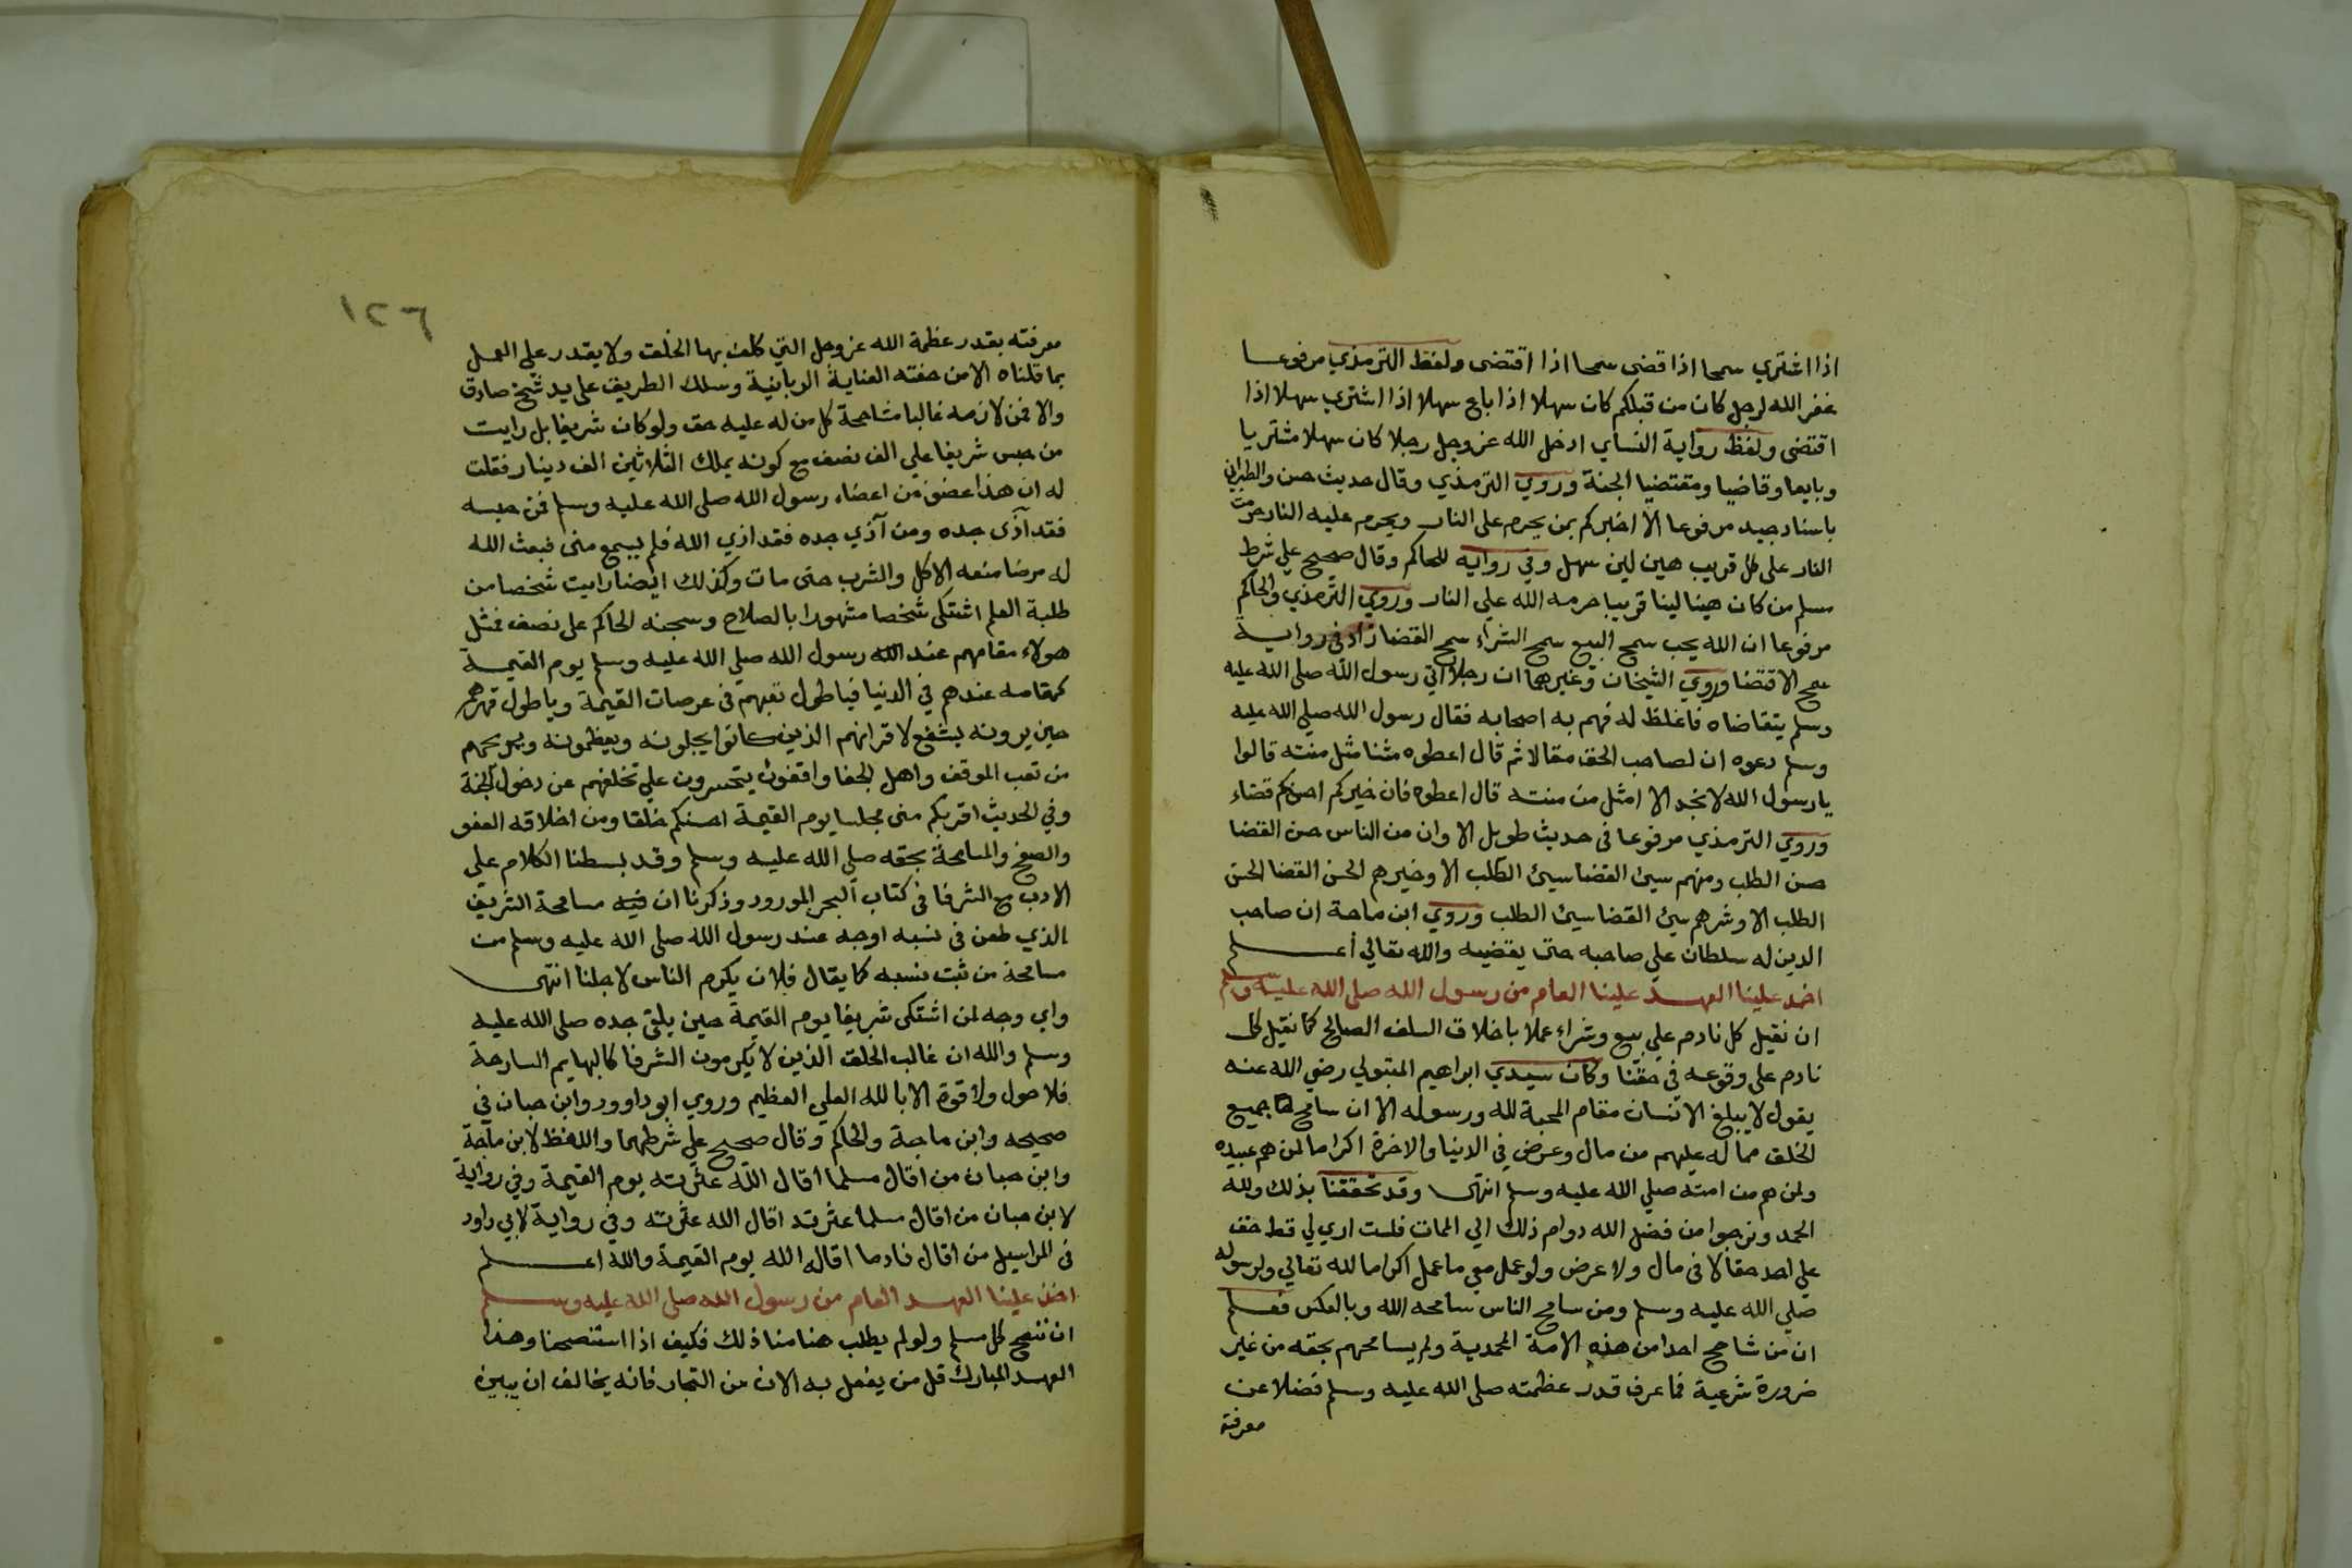 اذا اشتري سمحا اذا قضى سمحا اذا اقتضى ولفظ الترمذي مرفوعا
غفر الله لرجل كان من قبلكم كان سهلا اذا باع سهلا اذا اشتري سهلا اذا
اقتضى ولفظ رواية النساي ادخل الله عز وجل رجلا كان سهلا مشتريا
وبايعا وقاضيا ومقتضيا الجنة وروي الترمذي وقال حديث حسن والطبراني
باسناد جيد مرفوعا الا اخبركم بمن يحرم على النار ويحرم عليه النار حرمت
النار على كل قريب هين لين سهل وفي رواية للحاكم وقال صحيح علي شرط
مسلم من كان هينا لينا قريبا حرمه الله علي النار وروي الترمذي والحاكم
مرفوعا ان الله يحب سمح البيع سمح الشراء سمح القضا زاد في رواية
سمح الاقتضا وروي الشيخان وغيرهما ان رجلا اتي رسول الله صلى الله عليه
وسلم يتقاضاه فاغلظ له فهم به اصحابه فقال رسول الله صلي الله عليه
وسلم دعوه ان لصاحب الحق مقالا ثم قال اعطوه سنا مثل سنه قالوا
يا رسول الله لا نجد الا امثل من سنه قال اعطوه فان خيركم احسنكم قضاء
وروي الترمذي مرفوعا في حديث طويل الا وان من الناس حسن القضا
حسن الطلب ومنهم سيئ القضا سيئ الطلب الا وخيرهم الحسن القضا الحسن
الطلب الا وشرهم سيئ القضا سيئ الطلب وروي ابن ماجة ان صاحب
الدين له سلطان علي صاحبه حتى يقضيه والله تعالي أعلم
اخذ علينا العهد علينا العام من رسول الله صلى الله عليه وسلم
ان نقيل كل نادم علي بيع وشراء عملا باخلاق السلف الصالح كما نقيل كل
نادم على وقوعه في حقنا وكان سيدي ابراهيم المتبولي رضي الله عنه
يقول لا يبلغ الانسان مقام المحبة لله ورسوله الا ان سامح جميع
الخلق مما له عليهم من مال وعرض في الدنيا والاخرة اكراما لمن هم عبيده
ولمن هم من امته صلي الله عليه وسلم انتهى وقد تحققنا بذلك ولله
الحمد ونرجوا من فضل الله دوام ذلك الي الممات فلست اري لي قط حق
علي احد حقا لا في مال ولا عرض ولو عمل معي ما عمل اكراما لله تعالي ولرسوله
صلي الله عليه وسلم ومن سامح الناس سامحه الله وبالعكس فعلم
ان من شاحح احدا من هذه الامة المحمدية ولم يسامحهم بحقه من غير
ضرورة شرعية فما عرف قدر عظمته صلى الله عليه وسلم فضلا عن
معرفة
١٢٦
معرفته بقدر عظمة الله عز وجل التي كلف بها الخلق ولا يقدر علي العمل
بما قلناه الا من حفته العناية الربانية وسلك الطريق على يد شيخ صادق
والا فمن لازمه غالبا مشاححة كل من له عليه حق ولو كان شريفا بل رايت
من حبس شريفا علي الف نصف مع كونه يملك الثلاثين الف دينار فقلت
له ان هذا عضو من اعضاء رسول الله صلى الله عليه وسلم فمن حبسه
فقد آذى جده ومن آذي جده فقد اذي الله فلم يسمع مني فبعث الله
له مرضا منعه الاكل والشرب حتى مات وكذلك ايضا رايت شخصا من
طلبة العلم اشتكى شخصا مشهورا بالصلاح وسجنه الحاكم على نصف فمثل
هولاء مقامهم عند الله رسول الله صلي الله عليه وسلم يوم القيمة
كمقامه عندهم في الدنيا فيا طول تعبهم في عرصات القيمة ويا طول قهرهم
حين يرونه يشفع لاقرانهم الذين كانوا يجلونه ويعظمونه ويريحهم
من تعب الموقف واهل الجفا واقفون يتحسرون علي تخلفهم عن دخول الجنة
وفي الحديث اقربكم مني مجلسا يوم القيمة احسنكم خلقا ومن اخلاقه العفو
والصفح والمسامحة بحقه صلي الله عليه وسلم وقد بسطنا الكلام علي
الادب مع الشرفا في كتاب البحر المورود وذكرنا ان فيه مسامحة الشريف
الذي طعن في نسبه اوجه عند رسول الله صلى الله عليه وسلم من
مسامحة من ثبت نسبه كما يقال فلان يكرم الناس لاجلنا انتهى
واي وجه لمن اشتكى شريفا يوم القيمة حين يلقى جده صلى الله عليه
وسلم والله ان غالب الخلق الذين لا يكرمون الشرفا كالبهايم السارحة
فلا حول ولا قوة الا بالله العلي العظيم وروي ابو داوود وابن حبان في
صحيحه وابن ماجة والحاكم وقال صحيح علي شرطهما واللفظ لابن ماجة
وابن حبان من اقال مسلما اقال الله عثرته يوم القيمة وفي رواية
لابن حبان من اقال مسلما عثرته اقال الله عثرته وفي رواية لابي داود
في المراسيل من اقال نادما اقاله الله يوم القيمة والله اعلم
اخذ علينا العهد العام من رسول الله صلى الله عليه وسلم
ان ننصح كل مسلم ولو لم يطلب هنا منا ذلك فكيف اذا استنصحنا وهذا
العهد المبارك قل من يفعل به الان من التجار فانه يخالف ان يبين